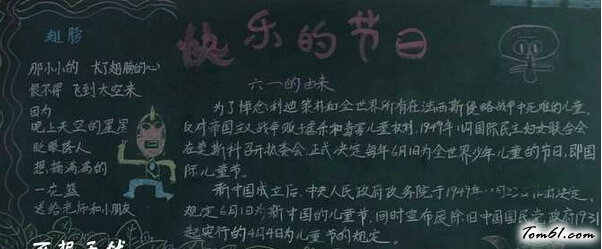 快乐的节日
翅膀
那小小的 长了翅膀的心
恨不得 飞到太空来
因为
晚上天空的星星
眨眼
想摘满满的
一花篮
送给老师和小朋友
六一的由来
为了悼念利迪策村和全世界所有在法西斯侵略战争中死难的儿童,
反对帝国主义战争贩子虐杀和毒害儿童权利,1949年11月国际民主妇女联合会
在莫斯科召开执委会,正式决定每年6月1日为全世界少年儿童的节日,即国
际儿童节。
新中国成立后,中央人民政府政务院于1949年 作出决定,
规定6月1日为新中国的儿童节,同时宣布废除旧中国国民党政府1931
起实行的4月4日为儿童节的规定。
Tom61.com